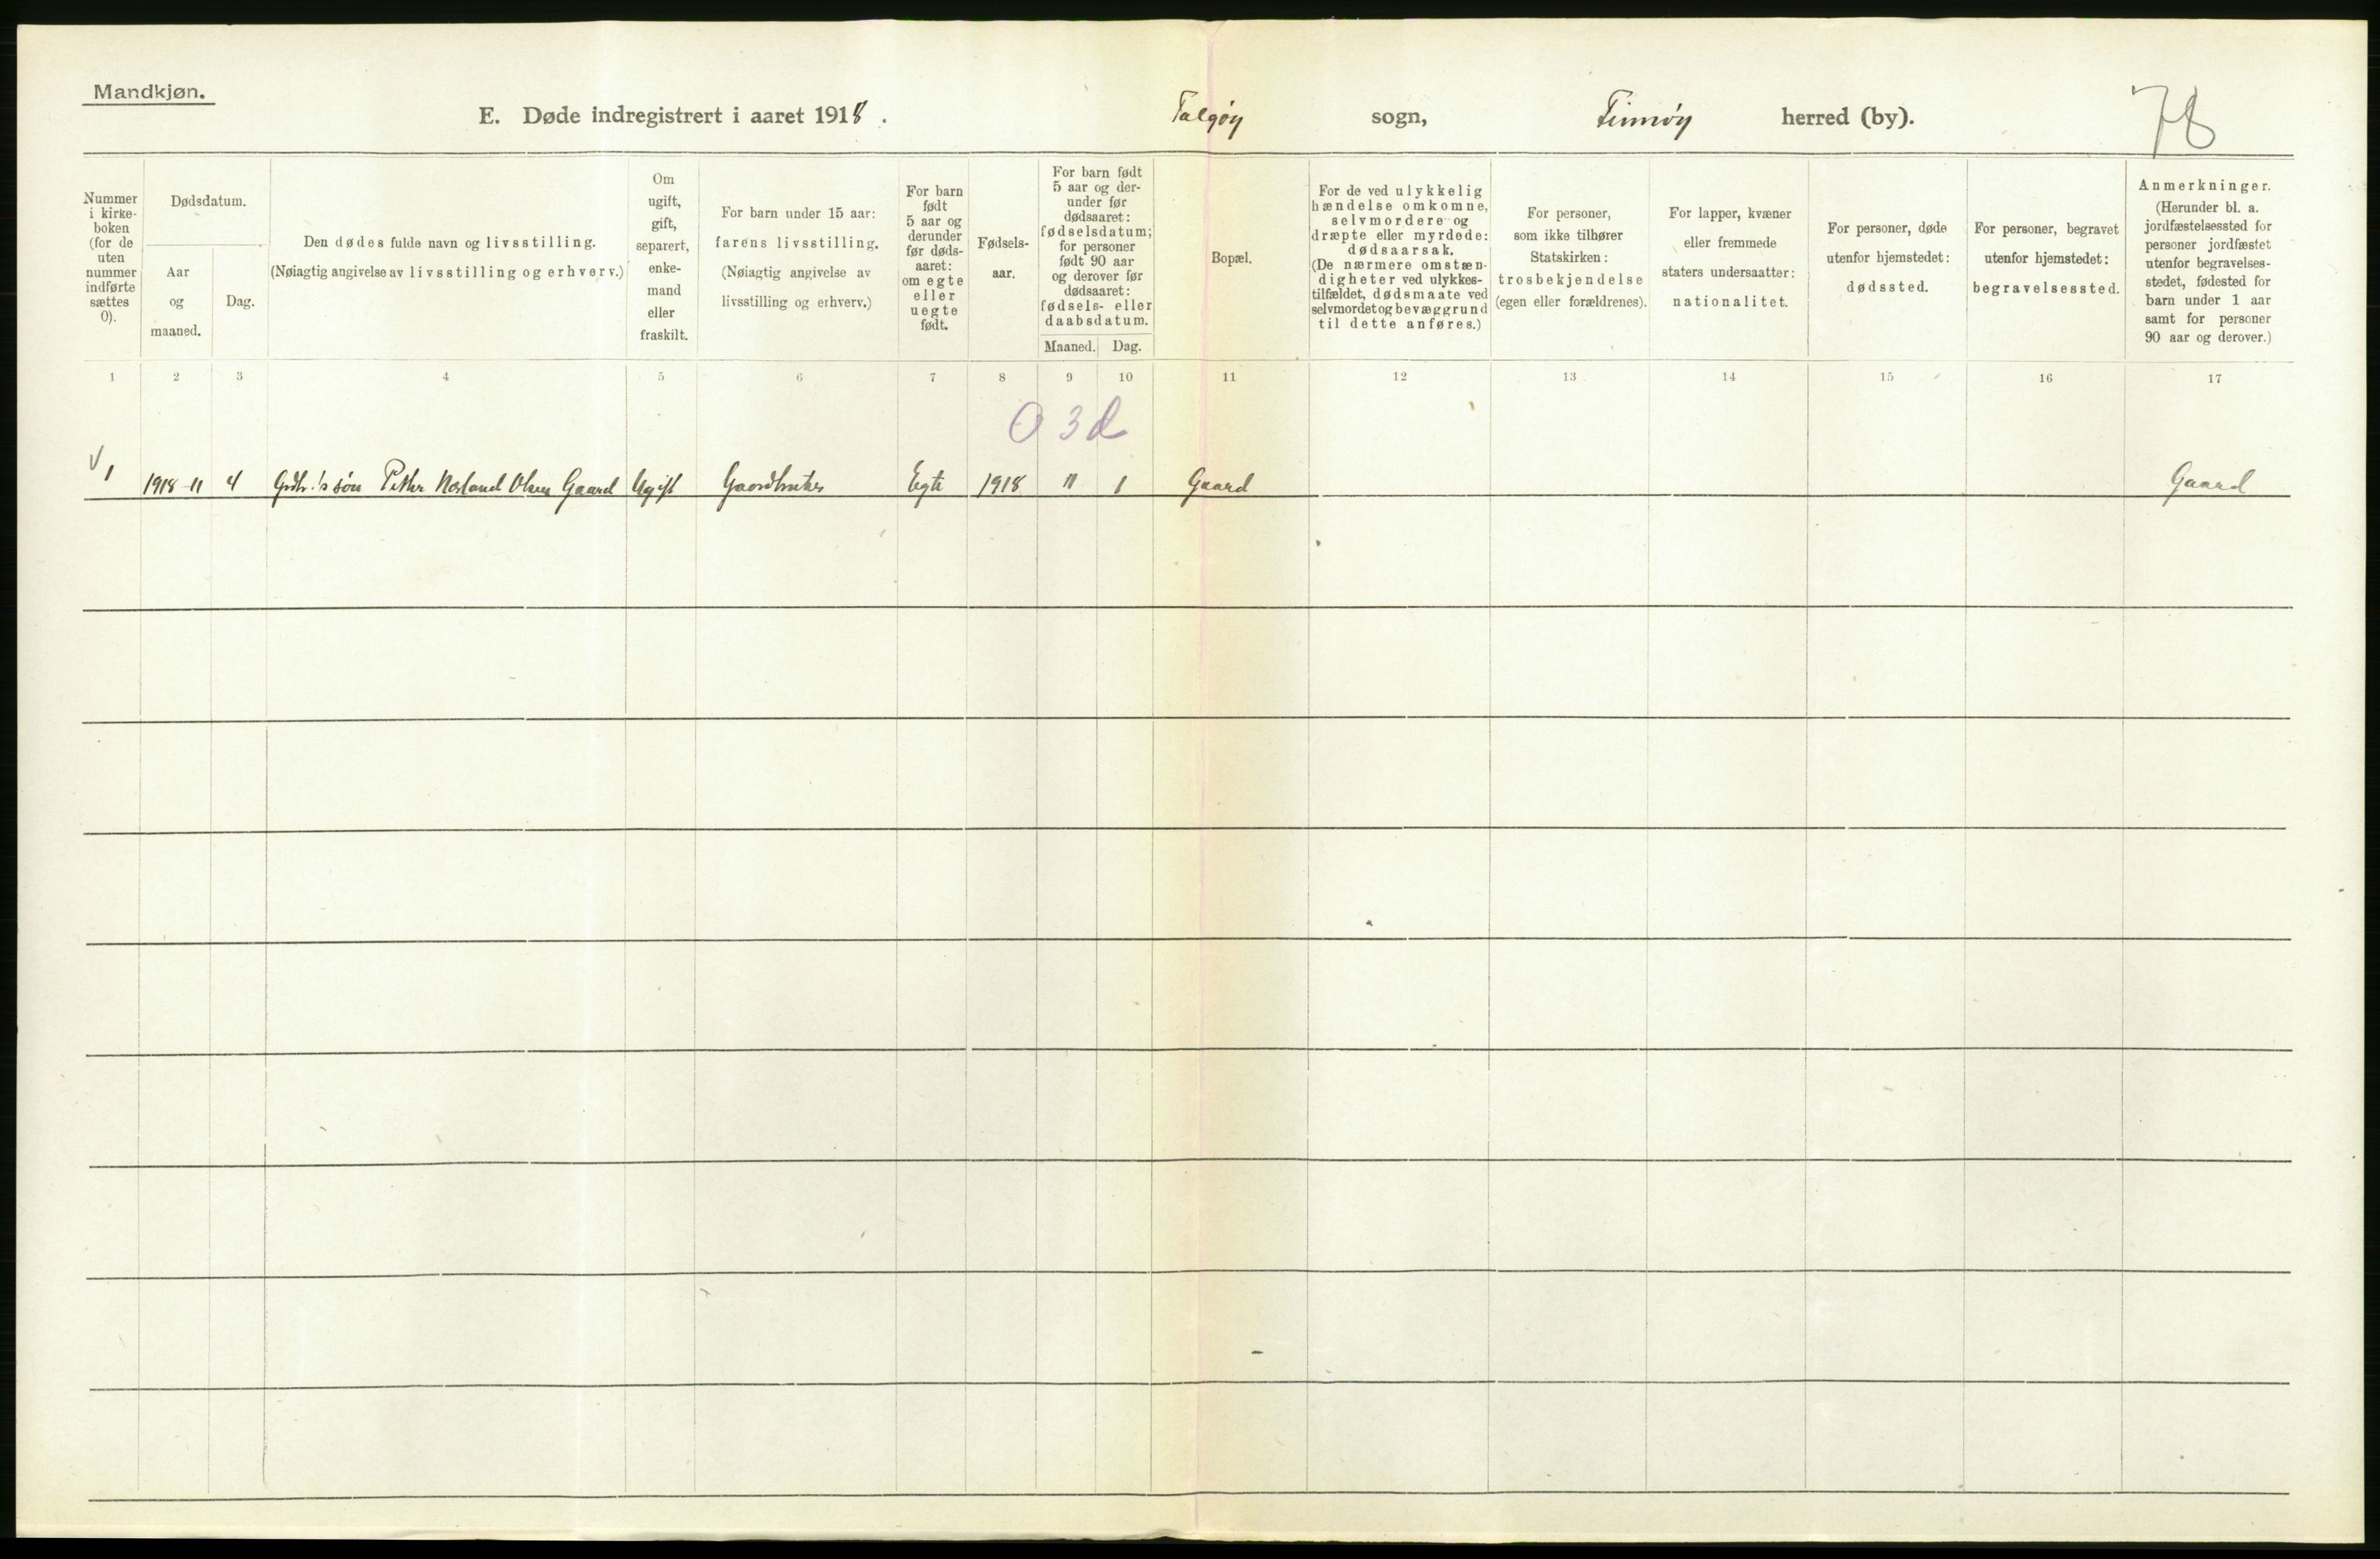 Mandkjøn.
E. Døde indregistrert i aaret 1918. Talgøy sogn, Finnøy herred (by).
78
Nummer i kirke- boken (for de uten nummer indførte sættes 0).
Dødsdatum.
Aar og maaned.
Dag.
Den dødes fulde navn og livsstilling.
(Nøiagtig angivelse av livsstilling og erhverv.)
Om ugift, gift, separert, enke- mand eller fraskilt.
For barn under 15 aar:
farens livsstilling.
(Nøiagtig angivelse av
livsstilling og erhverv.)
For barn født 5 aar og derunder før døds- aaret: om egte eller uegte født.
Fødsels- aar.
For barn født 5 aar og der- under før dødsaaret: fødselsdatum; for personer født 90 aar og derover før dødsaaret: fødsels- eller daabsdatum.
Maaned. Dag.
Bopæl.
For de ved ulykkelig hændelse omkomne, selvmordere og dræpte eller myrdede: dødsaarsak. (De nærmere omstæn- digheter ved ulykkes- tilfældet, dødsmaate ved selvmordet og bevæggrund til dette anføres.)
For personer, som ikke tilhører Statskirken: trosbekjendelse (egen eller forældrenes).
For lapper, kvæner eller fremmede staters undersaatter: nationalitet.
For personer, døde utenfor hjemstedet: dødssted.
For personer, begravet utenfor hjemstedet: begravelsessted.
Anmerkninger.
(Herunder bl. a. jordfæstelsessted for personer jordfæstet utenfor begravelses- stedet, fødested for barn under 1 aar samt for personer 90 aar og derover.)
1 2 3 4 5 6 7 8 9 10 11 12 13 14 15 16 17
0 3 d
1 1918-11 4 Grdbr.'s søn Petter Olsen Gaard Ugift Gaardbruker Egte 1918 11 1 Gaard Gaard